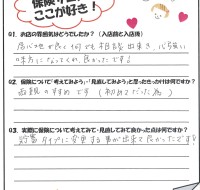 ここが好き!
Q1. お店の雰囲気はどうでしたか?(入店前と入店後)
何でも相談出来き、心強い
味方になってくれ、良かったです!
Q2. 保険について「考えてみよう」・「見直してみよう」と思ったきっかけは何ですか?
両親のすすめです(初めてだった為)
Q3. 実際に保険について考えてみて・見直してみて良かった点は何ですか?
貯蓄タイプに変更する事が出来て良かったです!